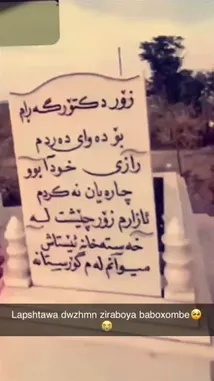 زۆر دکتۆر گەڕام
بۆ دەوای دەردم
رازی خودا بوو
چارەیان نەکردم
ئازارم زۆر چێشت لە
خەستەخانە ئێستاش
میوانم لەم گۆڕستانە
Lapshtawa dwzhmn ziraboya baboxombe🥺
😭